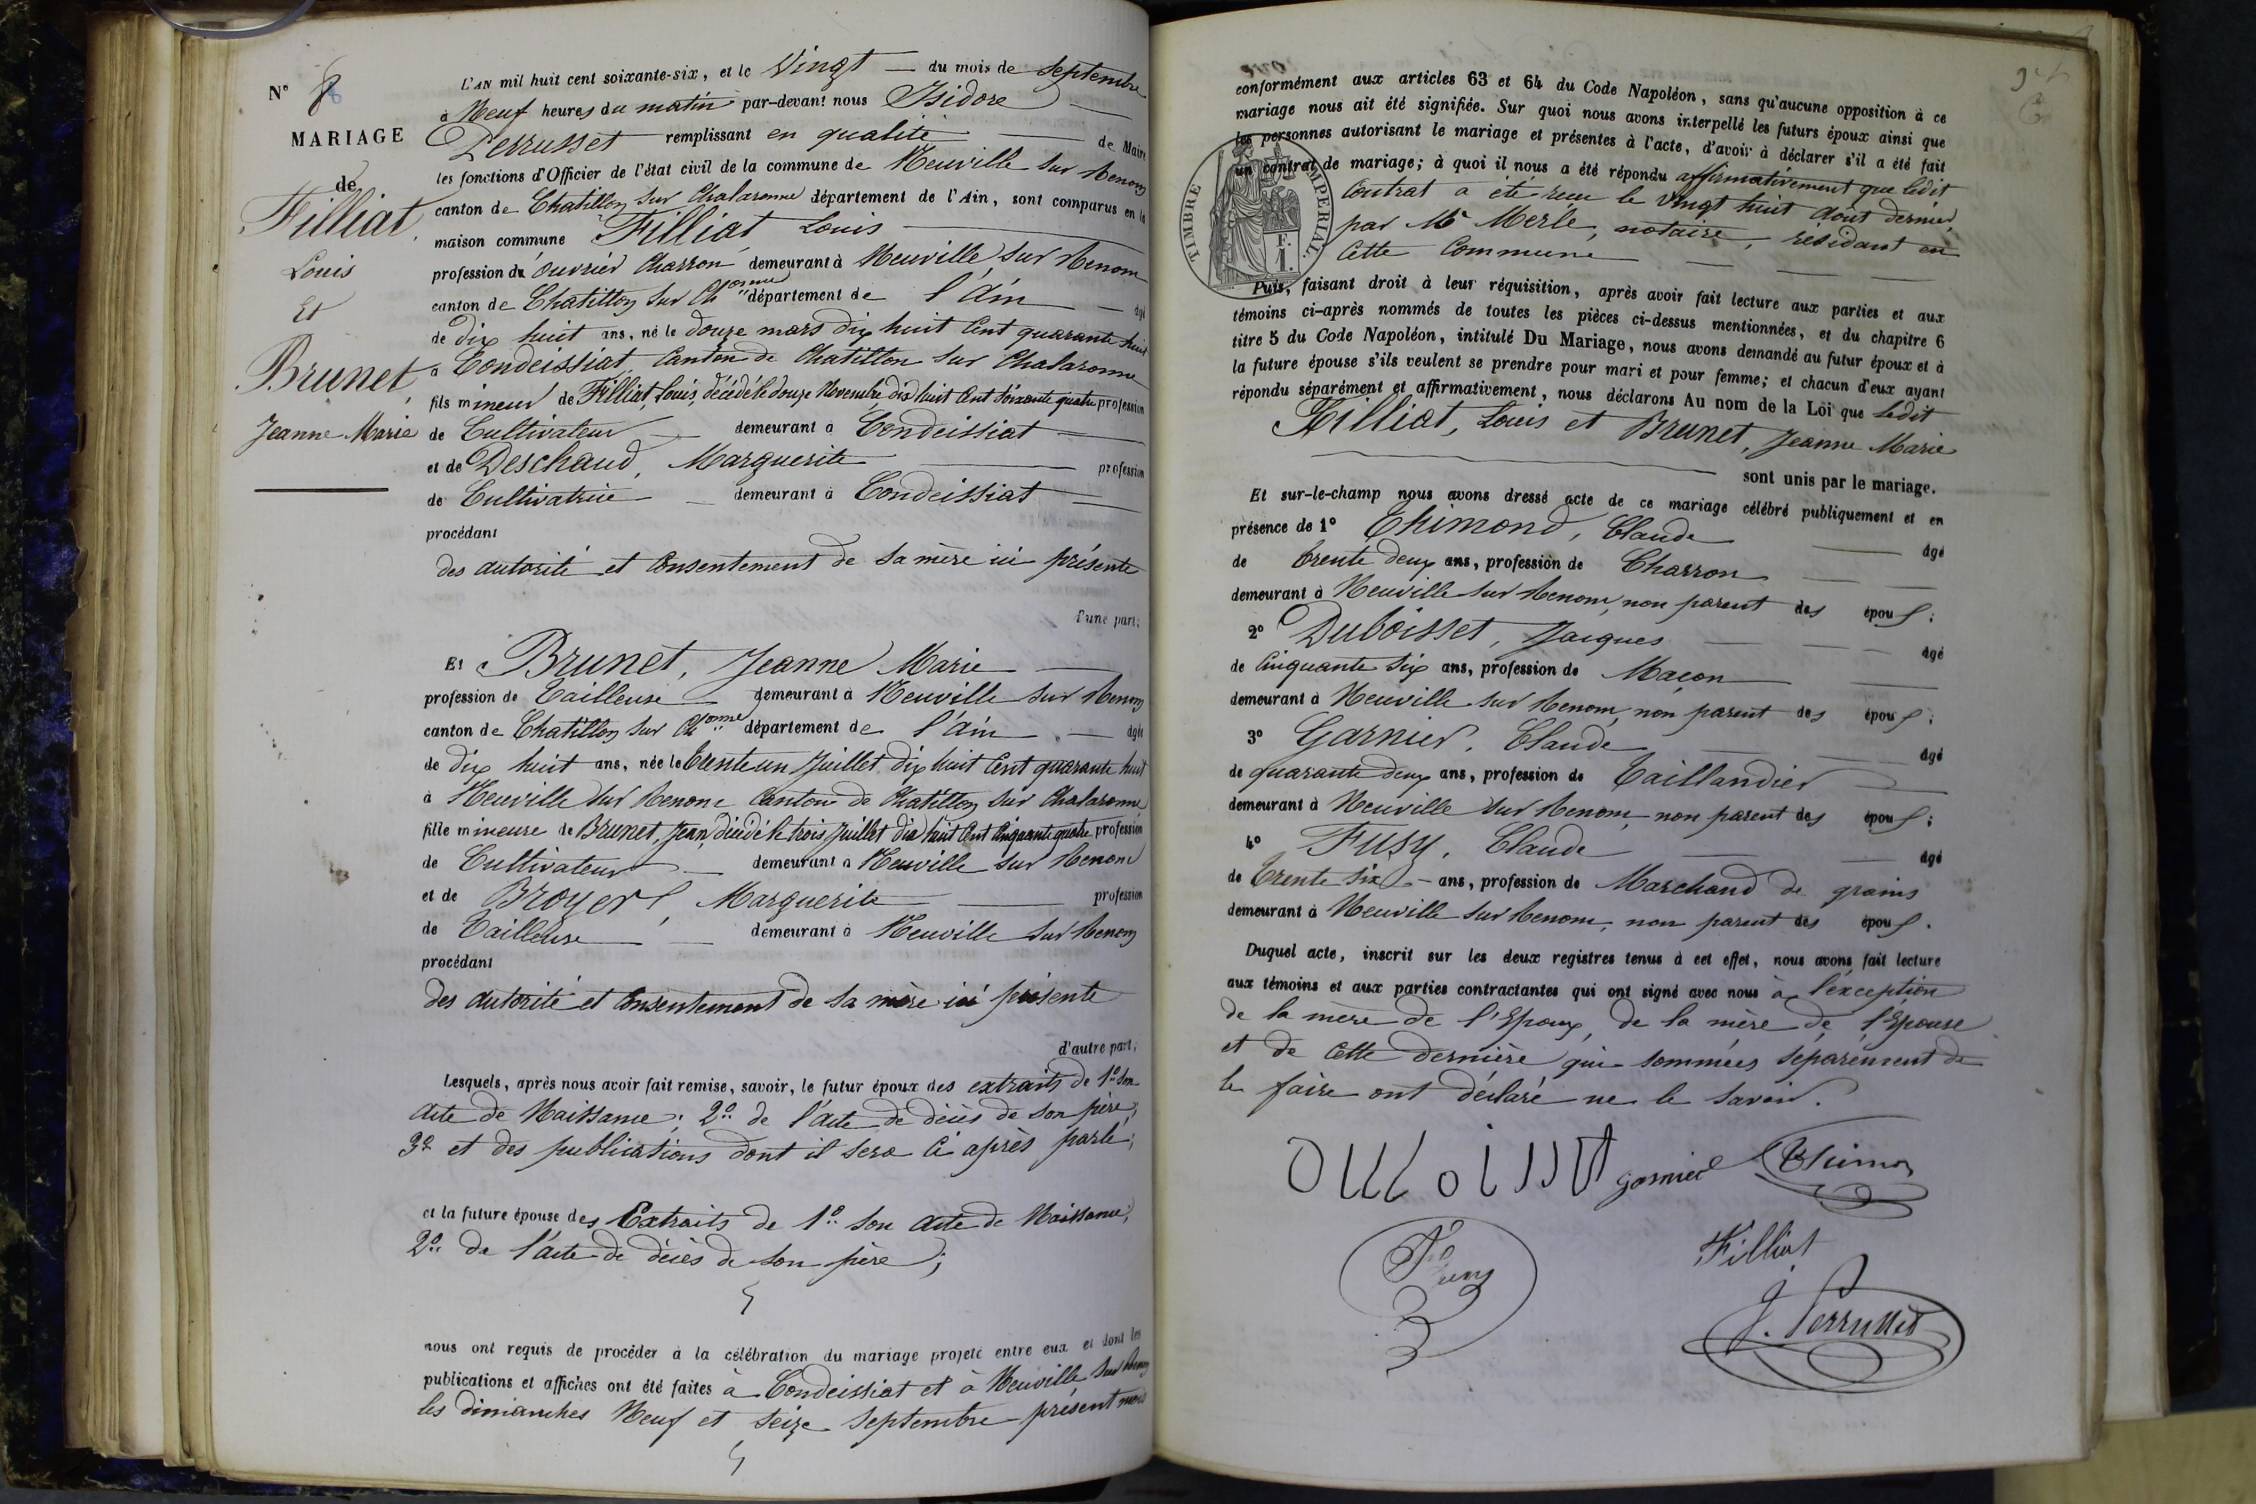 N° 8
MARIAGE
de
Filliat,
Louis
Et
Brunet,
Jeanne Marie
L'AN mil huit cent soixante-six, et le Vingt du mois de Septembre
à Neuf heures du matin par-devant nous Isidore
Perrusset remplissant en qualité de Maire
les fonctions d'Officier de l'état civil de la commune de Neuville sur Renom
canton de Chatillon sur Chalaronne département de l'Ain, sont comparus en la
maison commune Filliat Louis
profession de Ouvrier Charron demeurant à Neuville sur Renom
canton de Chatillon sur Chonne département de l'Ain âgé
de dix huit ans, né le douze mars dix huit Cent quarante huit
à Condeissiat, Canton de Chatillon sur Chalaronne
fils mineur de Filliat, Louis, décédé le douze Novembre dix huit Cent soixante quatre profession
de Cultivateur demeurant à Condeissiat
et de Deschaud, Marguerite profession
de Cultivatrice demeurant à Condeissiat
procédant
des autorité et Consentement de sa mère ici présente
d'une part;
Et Brunet, Jeanne Marie
profession de Tailleuse demeurant à Neuville sur Renom
canton de Chatillon sur Chonne département de l'Ain âgée
de dix huit ans, née le trente un Juillet dix huit Cent quarante huit
à Neuville sur Renom Canton de Chatillon sur Chalaronne
fille mineure de Brunet, Jean, décédé le trois Juillet dix huit Cent Cinquante quatre profession
de Cultivateur demeurant à Neuville sur Renom
et de Broyer, Marguerite profession
de Tailleuse demeurant à Neuville sur Renom
procédant
des autorité et Consentement de sa mère ici présente
d'autre part;
Lesquels, après nous avoir fait remise, savoir, le futur époux des extraits de 1° son
acte de Naissance; 2° de l'acte de décès de son père;
3° et des publications dont il sera Ci après parlé;
et la future épouse des Extraits de 1° son acte de Naissance;
2° de l'acte de décès de son père;
nous ont requis de procéder à la célébration du mariage projeté entre eux et dont les
publications et affiches ont été faites à Condeissiat et à Neuville sur Renom
les dimanches Neuf et seize Septembre présent mois
conformément aux articles 63 et 64 du Code Napoléon, sans qu'aucune opposition à ce
mariage nous ait été signifiée. Sur quoi nous avons interpellé les futurs époux ainsi que
les personnes autorisant le mariage et présentes à l'acte, d'avoir à déclarer s'il a été fait
un contrat de mariage; à quoi il nous a été répondu affirmativement que ledit
Contrat a été reçu le vingt huit Août dernier,
par Me Merle, notaire, résidant en
Cette Commune
TIMBRE IMPERIAL.
F.
1.
Puis, faisant droit à leur réquisition, après avoir fait lecture aux parties et aux
témoins ci-après nommés de toutes les pièces ci-dessus mentionnées, et du chapitre 6
titre 5 du Code Napoléon, intitulé Du Mariage, nous avons demandé au futur époux et à
la future épouse s'ils veulent se prendre pour mari et pour femme; et chacun d'eux ayant
répondu séparément et affirmativement, nous déclarons Au nom de la Loi que Ledit
Filliat, Louis et Brunet, Jeanne Marie
sont unis par le mariage.
Et sur-le-champ nous avons dressé acte de ce mariage célébré publiquement et en
présence de 1° Thimond, Claude âgé
de trente deux ans, profession de Charron
demeurant à Neuville sur Renom, non parent des époux;
2° Duboisset, Jacques âgé
de Cinquante Six ans, profession de Maçon
demeurant à Neuville sur Renom, non parent des époux;
3° Garnier, Claude âgé
de quarante deux ans, profession de Taillandier
demeurant à Neuville sur Renom, non parent des époux;
4° Fusy, Claude âgé
de trente six ans, profession de Marchand de grains
demeurant à Neuville sur Renom, non parent des époux.
Duquel acte, inscrit sur les deux registres tenus à cet effet, nous avons fait lecture
aux témoins et aux parties contractantes qui ont signé avec nous à l'exception
de la mère de l'Epoux, de la mère de l'Epouse
et de Cette dernière qui sommées séparément de
le faire ont déclaré ne le savoir.
Duboisset Garnier Thimon
Fusy
Filliat
J. Perrusset